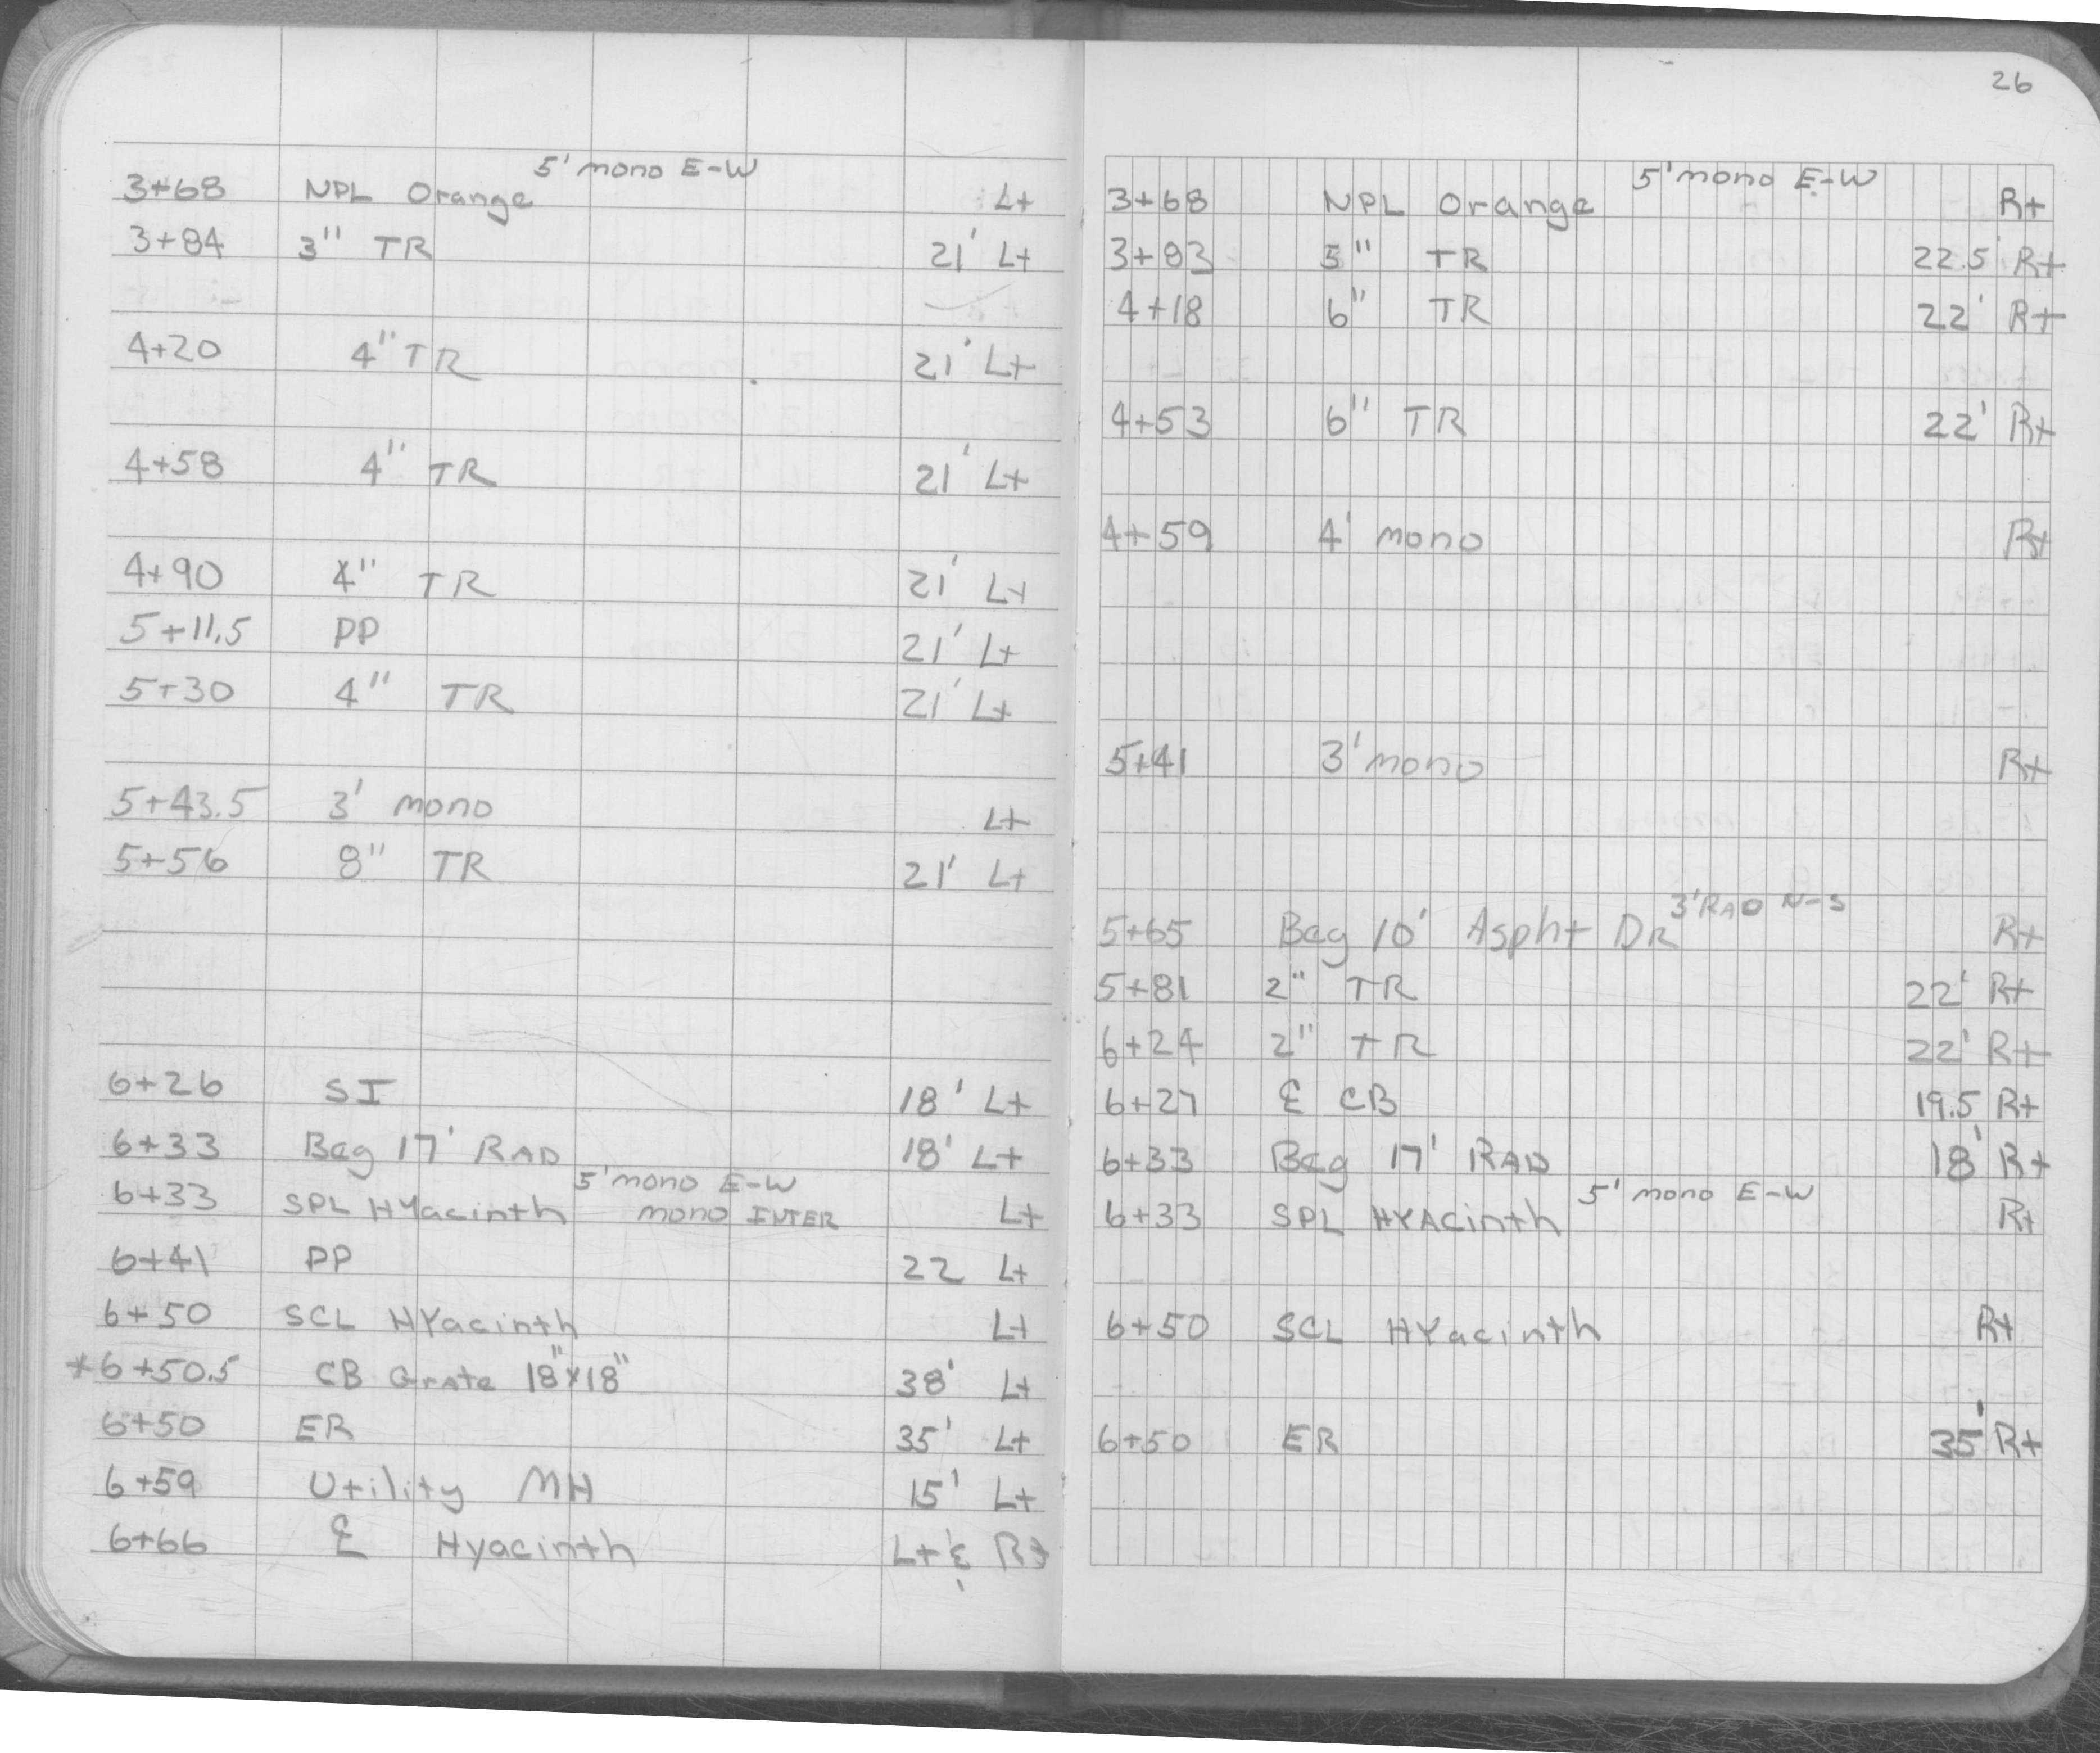 5' mono E-W
3+68 NPL Orange Lt
3+84 3" TR 21' Lt
4+20 4" TR 21' Lt
4+58 4" TR 21' Lt
4+90 4" TR 21' Lt
5+11.5 PP 21' Lt
5+30 4" TR 21' Lt
5+43.5 3' mono Lt
5+56 8" TR 21' Lt
6+26 SI 18' Lt
6+33 Beg 17' RAD 18' Lt
5' mono E-W
6+33 SPL HYacinth mono INTER Lt
6+41 PP 22 Lt
6+50 SCL HYacinth Lt
*6+50.5 CB Grate 18"x18" 38' Lt
6+50 ER 35' Lt
6+59 Utility MH 15' Lt
6+66 ℄ Hyacinth Lt & Rt
26
5' mono E-W
3+68 NPL Orange Rt
3+83 TR 22.5' Rt
4+18 6" TR 22' Rt
4+53 6" TR 22' Rt
4+59 4' mono Rt
5+41 3' mono Rt
3' RAD N-S
5+65 Beg 10' Aspht DR Rt
5+81 2" TR 22' Rt
6+24 2" TR 22' Rt
6+27 ℄ CB 19.5 Rt
6+33 Beg 17' RAD 18' Rt
5' mono E-W
6+33 SPL HYAcinth Rt
6+50 SCL HYacinth Rt
6+50 ER 35' Rt